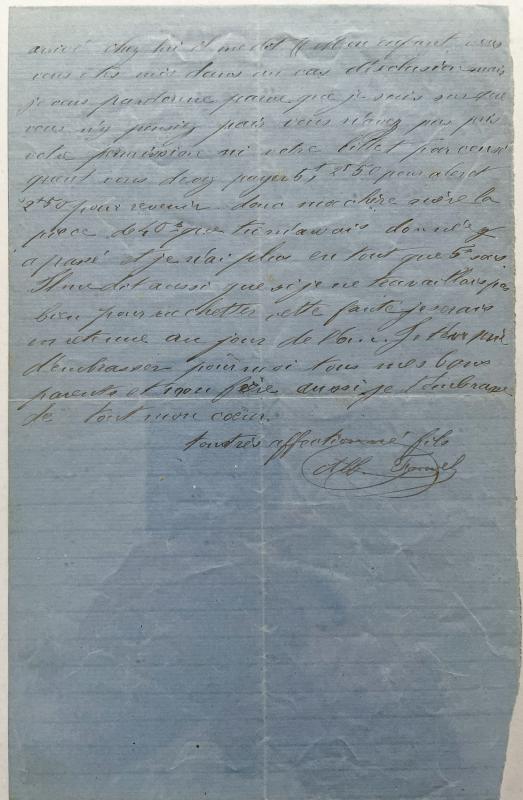 arrivé chez lui il me dit mon enfant vous
vous etes mis dans un cas d'exclusion mais
je vous pardonne parce que je suis sur que
vous n'y pensiez pas vous n'avez pas pris
votre permission ni votre billet par consé
quent vous devez payer 5f 2f50 pour aler et
2f50 pour revenir donc ma chère mère la
pièce de 40s que tu m'avais donné y
a passé et je n'ai plus en tout que 5 sous
Il me dit aussi que si je ne travaillais pas
bien pour rachetter cette faute je serais
en retenue au jour de l'an. Je te prie
d'embrasser pour moi tous mes bons
parents et mon frère aussi je t'embrasse
de tout mon coeur.
ton très affectionné fils
Alb.